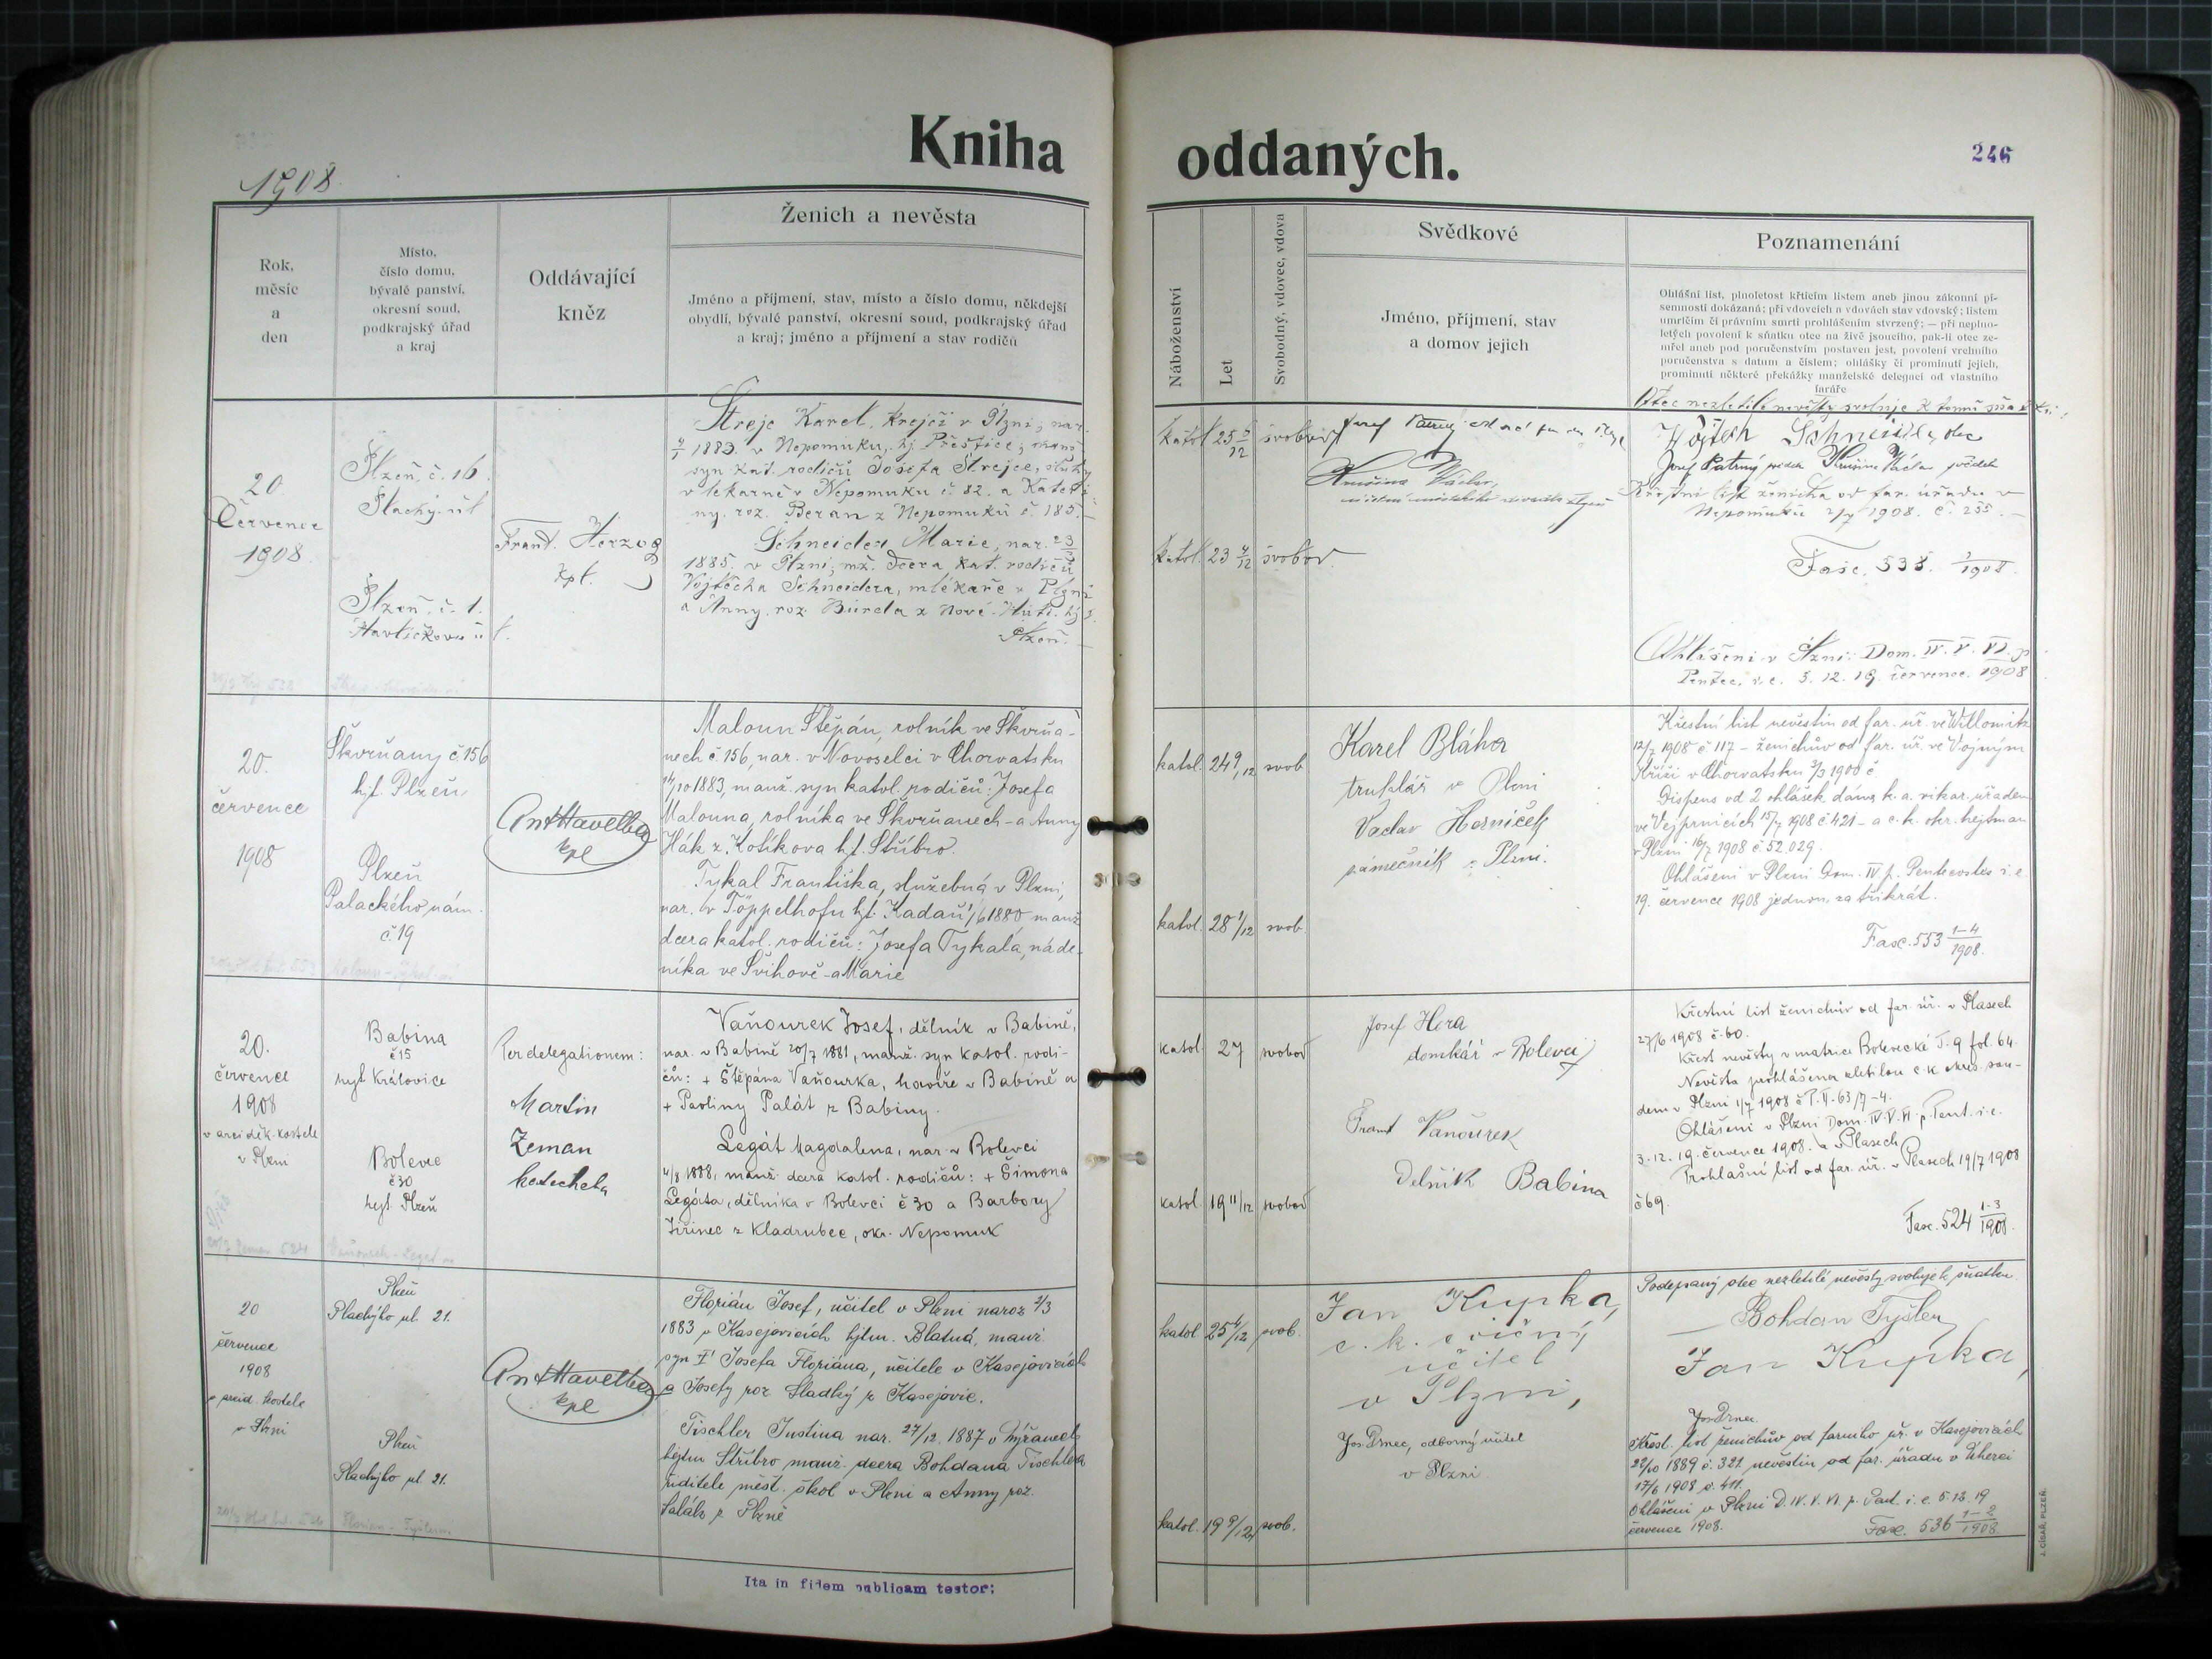 Kniha oddaných.
246
1908.
Ženich a nevěsta
Rok,
měsíc
a
den
Místo,
číslo domu,
bývalé panství,
okresní soud,
podkrajský úřad
a kraj
Oddávající
kněz
Jméno a příjmení, stav, místo a číslo domu, někdejší
obydlí, bývalé panství, okresní soud, podkrajský úřad
a kraj; jméno a příjmení a stav rodičů
Náboženství
Let
Svobodný, vdovec, vdova
Svědkové
Jméno, příjmení, stav
a domov jejich
Poznamenání
Ohlášní list, plnoletost křticím listem aneb jinou zákonní pí-
semností dokázaná; při vdovcích a vdovách stav vdovský; listem
umrlčím či právním smrti prohlášením stvrzený; — při neplno-
letých povolení k sňatku otce na živě jsoucího, pak-li otec ze-
mřel aneb pod poručenstvím postaven jest, povolení vrchního
poručenstva s datum a číslem; ohlášky či prominutí jejich,
prominutí některé překážky manželské delegací od vlastního
faráře
20.
Července
1908.
Plzeň, č. 16
Plachý. ul
Plzeň, č. 1.
Havlíčkova ul.
Frant. Herzog
kpl.
Strejc Karel, krejčí v Plzni, nar.
1883. v Nepomuku, hj Přeštice, manž
syn kat. rodičů Josefa Strejce, sluhy
v lékárně v Nepomuku č. 82. a Kateři-
ny, roz. Beran z Nepomuku č. 185.
Schneider Marie, nar. 23/3
1885. v Plzni, mž. dcera kat. rodičů
Vojtěcha Schneidera, mlékaře v Plzni
a Anny, roz. Burda z Nové Huti hj
Plzeň.
katol 25 svobod
katol. 23 4/12 svobod.
Josef Patrný
Hrušina Václav,
Otec nezletilé nevěsty svoluje k tomu sňatku:
Vojtěch Schneider, otec
Josef Patrný svědek Hrušina Václav svědek
Křestní list ženicha od far. úřadu v
Nepomuku 2/7 1908. č. 255.
Fasc. 538. 1/1908.
Ohlášeni v Plzni: Dom. IV. V. VI. p.
Pentec. i. e. 5. 12. 19. července. 1908
20.
července
1908
Škvrňany č 156
hjt. Plzeň
Plzeň
Palackého nám.
č. 19
Ant Havelka
kpl
Maloun Štěpán, rolník ve Škvrňa-
nech č. 156, nar. v Novoselci v Chorvatsku
14/10 1883, manž. syn katol. rodičů: Josefa
Malouna, rolníka ve Škvrňanech - a Anny
Hák z Kotíkova hjt. Stříbro.
Tykal Františka, služebná v Plzni,
nar. v Töppelhofu hjt. Kadaň 1/6 1880, manž.
dcera katol. rodičů: Josefa Tykala, náde-
níka ve Švihově - a Marie
katol. 24 9/12 svob
katol. 28 1/12 svob.
Karel Bláha
truhlář v Plzni
Vaclav Horniček
zámečník v Plzni.
Křestní list nevěstin od far. úř. ve Willomitz
12/7 1908 č 117 - ženichův od far. úř. ve Vojným
Kříži v Chorvatsku 3/3 1900 č
Dispens od 2 ohlášek dána k. a. vikar. úřadem
ve Vejprnicích 15/7 1908 č 421 - a c. k. okr. hejtman
v Plzni 16/7 1908 č. 52.029.
Ohlášeni v Plzni Dom. IV. p. Pentecostes i. e.
19. července 1908 jednou za třikrát.
Fasc. 553 1-4/1908.
20.
července
1908
v arciděk. kostele
v Plzni
Babina
č 15
hejt Kralovice
Bolevec
č 30
hejt. Plzeň
Per delegationem:
Martin
Zeman
katecheta
Vaňourek Josef, dělník v Babině,
nar. v Babině 20/7 1881, manž. syn katol. rodi-
čů: + Štěpána Vaňourka, havíře v Babině a
+ Pavliny Palát z Babiny.
Legát Magdalena, nar. v Bolevci
4/8 1888, manž. dcera katol. rodičů: + Šimona
Legáta, dělníka v Bolevci č 30 a Barbory
Jiřinec z Kladrubce, okr. Nepomuk
katol 27 svobod
katol. 19 11/12 svobod
Josef Hora
domkář v Bolevci
Frant Vaňourek
Dělník Babina
Křestní list ženichův od far. úř. v Plasech
27/6 1908 č. 60.
Křest nevěsty v matrice Bolevecké T. 9 fol. 64.
Nevěsta prohlášena zletilou c. k. okres. sou-
dem v Plzni 1/7 1908 č P. II. 63/7-4.
Ohlášeni v Plzni Dom. IV. V. VI. p. Pent. i. e.
5. 12. 19. července 1908. a v Plasech
Prohlašní list od far. úř. v Plasech 19/7 1908
č 69.
Fasc. 524 1-3/1908.
20
července
1908
v arcid. kostele
v Plzni
Plzeň
Plachýho ul. 21.
Plzeň
Plachýho ul 21.
Ant Havelka
kpl
Florián Josef, učitel v Plzni naroz 2/3
1883 v Kasejovicích hjtm. Blatná, manž.
syn + Josefa Floriána, učitele v Kasejovicích
a Josefy roz Sladký z Kasejovic.
Tischler Justina nar. 27/12. 1887 v Nýřanech
hejtm Stříbro manž. dcera Bohdana Tischlera
řiditele měst. škol v Plzni a Anny roz.
Salák z Plzně
katol 25 4/12 svob.
katol. 19 9/12 svob.
Jan Kupka,
c. k. cvičný
učitel
v Plzni,
Jos Drnec, odborný učitel
v Plzni
Podepsaný otec nezletilé nevěsty svoluje k sňatku.
Bohdan Tyšler
Jan Kupka,
Jos Drnec.
Křest. list ženichův od farního úř. v Kasejovicích
22/10 1889 č. 321 nevěstin od far. úřadu v Úherci
17/6 1908 č. 411.
Ohlášeni v Plzni D. IV. V. VI. p. Pent. i. e. 5. 12. 19
července 1908.
Fasc. 536 1-2/1908
Ita in fidem publicam testor:
J. CÍSAŘ, PLZEŇ.